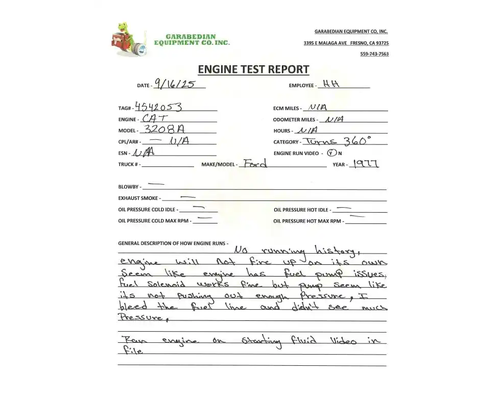 GARABEDIAN
EQUIPMENT CO. INC.
GARABEDIAN EQUIPMENT CO, INC.
3395 E MALAGA AVE FRESNO, CA 93725
559-743-7563
ENGINE TEST REPORT
DATE - 9/16/25 EMPLOYEE - HH
TAG# - 4542053 ECM MILES - N/A
ENGINE - CAT ODOMETER MILES - N/A
MODEL - 3208A HOURS - N/A
CPL/AR# - N/A CATEGORY - Turns 360°
ESN - N/A ENGINE RUN VIDEO - Y N
TRUCK # - MAKE/MODEL - Ford YEAR - 1977
BLOWBY - —
EXHAUST SMOKE - —
OIL PRESSURE COLD IDLE - — OIL PRESSURE HOT IDLE - —
OIL PRESSURE COLD MAX RPM - — OIL PRESSURE HOT MAX RPM - —
GENERAL DESCRIPTION OF HOW ENGINE RUNS - No running history,
engine will not fire up on its own
Seem like engine has fuel pump issues,
fuel solenoid works fine but pump seem like
its not pushing out enough Pressure, I
bleed the fuel line and didn't see much
Pressure,
Ran engine on starting fluid Video in
file